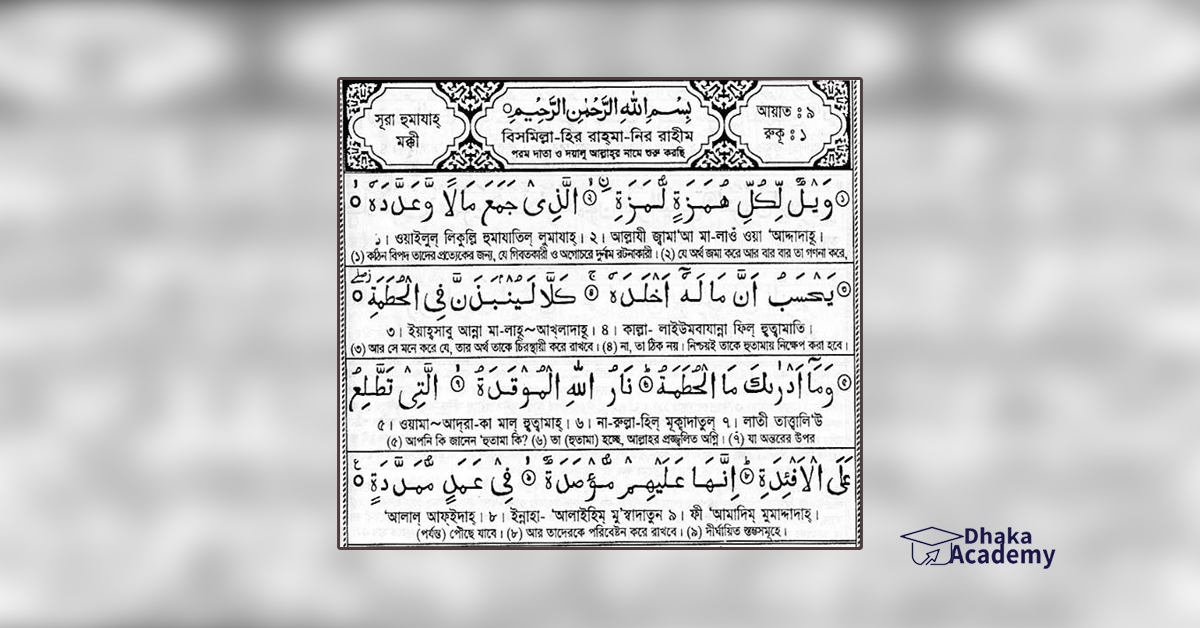 সূরা হুমাযাহ্
মক্কী
بِسْمِ اللهِ الرَّحْمٰنِ الرَّحِيْمِ
বিসমিল্লা-হির রাহ্‌মা-নির রাহীম
পরম দাতা ও দয়ালু আল্লাহ্‌র নামে শুরু করছি
আয়াত : ৯
রুকূ : ১
وَيْلٌ لِّكُلِّ هُمَزَةٍ لُّمَزَةِ ۨ ﴿١﴾ الَّذِىْ جَمَعَ مَالًا وَّعَدَّدَهٗ
১। ওয়াইলুল্ লিকুল্লি হুমাযাতিল্ লুমাযাহ্। ২। আল্লাযী জ্বামা'আ মা-লাওঁ ওয়া 'আদ্দাদাহূ।
(১) কঠিন বিপদ তাদের প্রত্যেকের জন্য, যে গিবতকারী ও অগোচরে দুর্নাম রটনাকারী। (২) যে অর্থ জমা করে আর বার বার তা গণনা করে,
يَحْسَبُ اَنَّ مَالَهٗۤ اَخْلَدَهٗ ﴿٣﴾ كَلَّا لَيُنْۢبَذَنَّ فِى الْحُطَمَةِ
৩। ইয়াহ্‌সাবু আন্না মা-লাহূ~আখ্‌লাদাহ্। ৪। কাল্লা- লাইউমবাযান্না ফিল্ হুত্বামাতি।
(৩) আর সে মনে করে যে, তার অর্থ তাকে চিরস্থায়ী করে রাখবে। (৪) না, তা ঠিক নয়। নিশ্চয়ই তাকে হুতামায় নিক্ষেপ করা হবে।
وَمَاۤ اَدْرٰىكَ مَا الْحُطَمَةُ ﴿٥﴾ نَارُ اللهِ الْمُوْقَدَةُ ﴿٦﴾ الَّتِىْ تَطَّلِعُ
৫। ওয়ামা~আদ্‌রা-কা মাল্ হুত্বামাহ্। ৬। না-রুল্লা-হিল্ মূক্বাদাতুল্ ৭। লাতী তাত্ত্বালি'উ
(৫) আপনি কি জানেন 'হুতামা কি? (৬) তা (হুতামা) হচ্ছে, আল্লাহর প্রজ্বলিত অগ্নি। (৭) যা অন্তরের উপর
عَلَى الْاَفْئِدَةِ ﴿٧﴾ اِنَّهَا عَلَيْهِمْ مُّؤْصَدَةٌ ﴿٨﴾ فِىْ عَمَدٍ مُّمَدَّدَةٍ
'আলাল্ আফ্‌ইদাহ্। ৮। ইন্নাহা- 'আলাইহিম্ মু'স্বাদাতুন ৯। ফী 'আমাদিম্ মুমাদ্দাদাহ্।
(পর্যন্ত) পৌছে যাবে। (৮) আর তাদেরকে পরিবেষ্টন করে রাখবে। (৯) দীর্ঘায়িত স্তম্ভসমূহে।
Dhaka
Academy